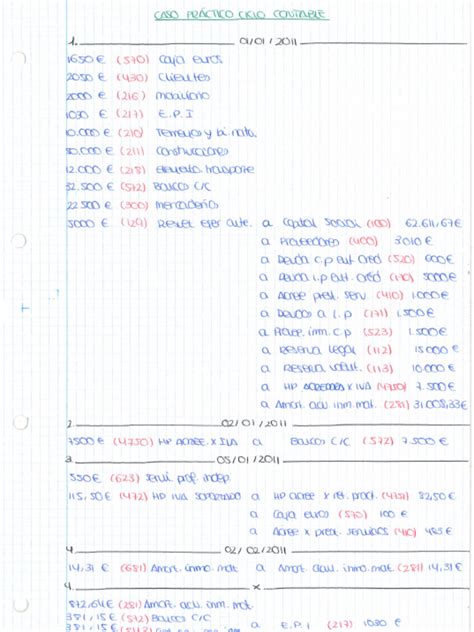 CASO PRÁCTICO CICLO CONTABLE
1. 01/01/2011
1650 € (570) Caja euros
2050 € (430) Clientes
2000 € (216) Mobiliario
1030 € (217) E.P.I
10.000 € (210) Terrenos y bi. nat.
50.000 € (211) Construcciones
12.000 € (218) elemento transporte
32.500 € (572) Bancos C/C
22.500 € (300) mercaderías
5000 € (129) Result ejer ante. a Capital Social (100) 62.611,67€
a Proveedores (400) 3010 €
a Deuda c.p ent cred (520) 600€
a Deuda l.p ent. créd (170) 5000€
a Acree prest. serv. (410) 1.000€
a Deudas a l.p (171) 1.500€
a Provee. inm. c.p (523) 1.500€
a Reserva legal (112) 15000 €
a Reserva volut. (113) 10.000 €
a HP ACREEDORA X IVA (4750) 7.500€
a Amort. acu. inm. mat. (281) 31.008,33€
2. 02/01/2011
7500€ (4750) HP ACREE. X IVA a Bancos C/C (572) 7.500€
3. 05/01/2011
550€ (623) Servi. prof. indep.
115,50€ (472) HP IVA SOPORTADO a HP acree x ret. pract. (4751) 82,50€
a Caja euros (570) 100 €
a Acree x prest. servicios (410) 485€
4. 02/02/2011
14,31 € (681) Amort. inmo. mat a Amort. acu. inmo. mat. (281) 14,31 €
4. x
872,64€ (281) Amort. acu. inm. mat.
381,15€ (572) Bancos C/C
a E.P.I (217) 1030 €